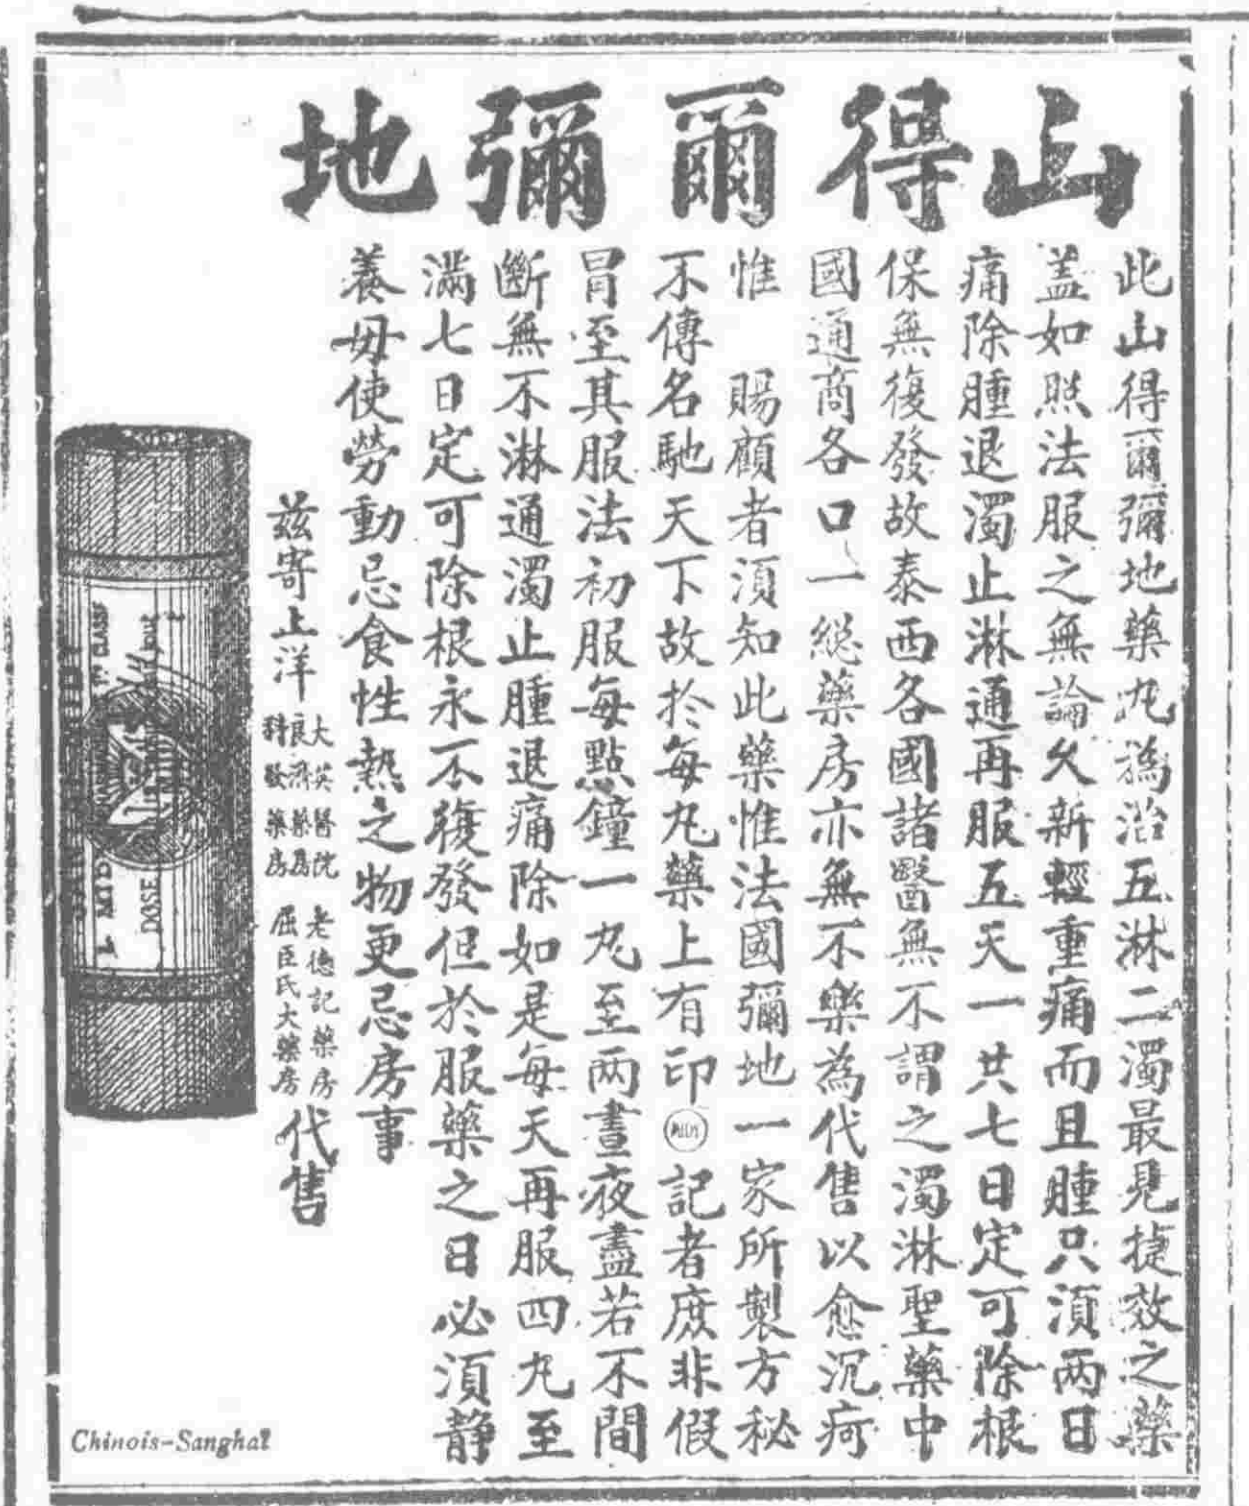 山得爾彌地
此山得爾彌地藥丸為治五淋二濁最見捷效之藥
盖如照法服之無論久新輕重痛而且腫只湏兩日
痛除腫退濁止淋通再服五天一共七日定可除根
保無復發故泰西各國諸醫無不謂之濁淋聖藥中
國通商各口一總藥房亦無不樂為代售以愈沉疴
惟 賜顧者湏知此藥惟法國彌地一家所製方秘
不傳名馳天下故於每丸藥上有印記者庶非假
冐至其服法初服每點鐘一丸至兩晝夜盡若不間
斷無不淋通濁止腫退痛除如是每天再服四丸至
滿七日定可除根永不復發但於服藥之日必湏静
養毋使勞動忌食性熱之物更忌房事
茲寄上洋
大英醫院
良濟藥房
科發藥房
老德記藥房
屈臣氏大藥房
代售
DOSE
Chinois-Sanghaï